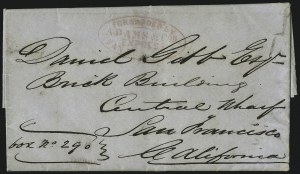 FORWARDED
ADAMS &
Daniel Gibb Esqr
Brick Building
Central Wharf
San Francisco
box No 290
California